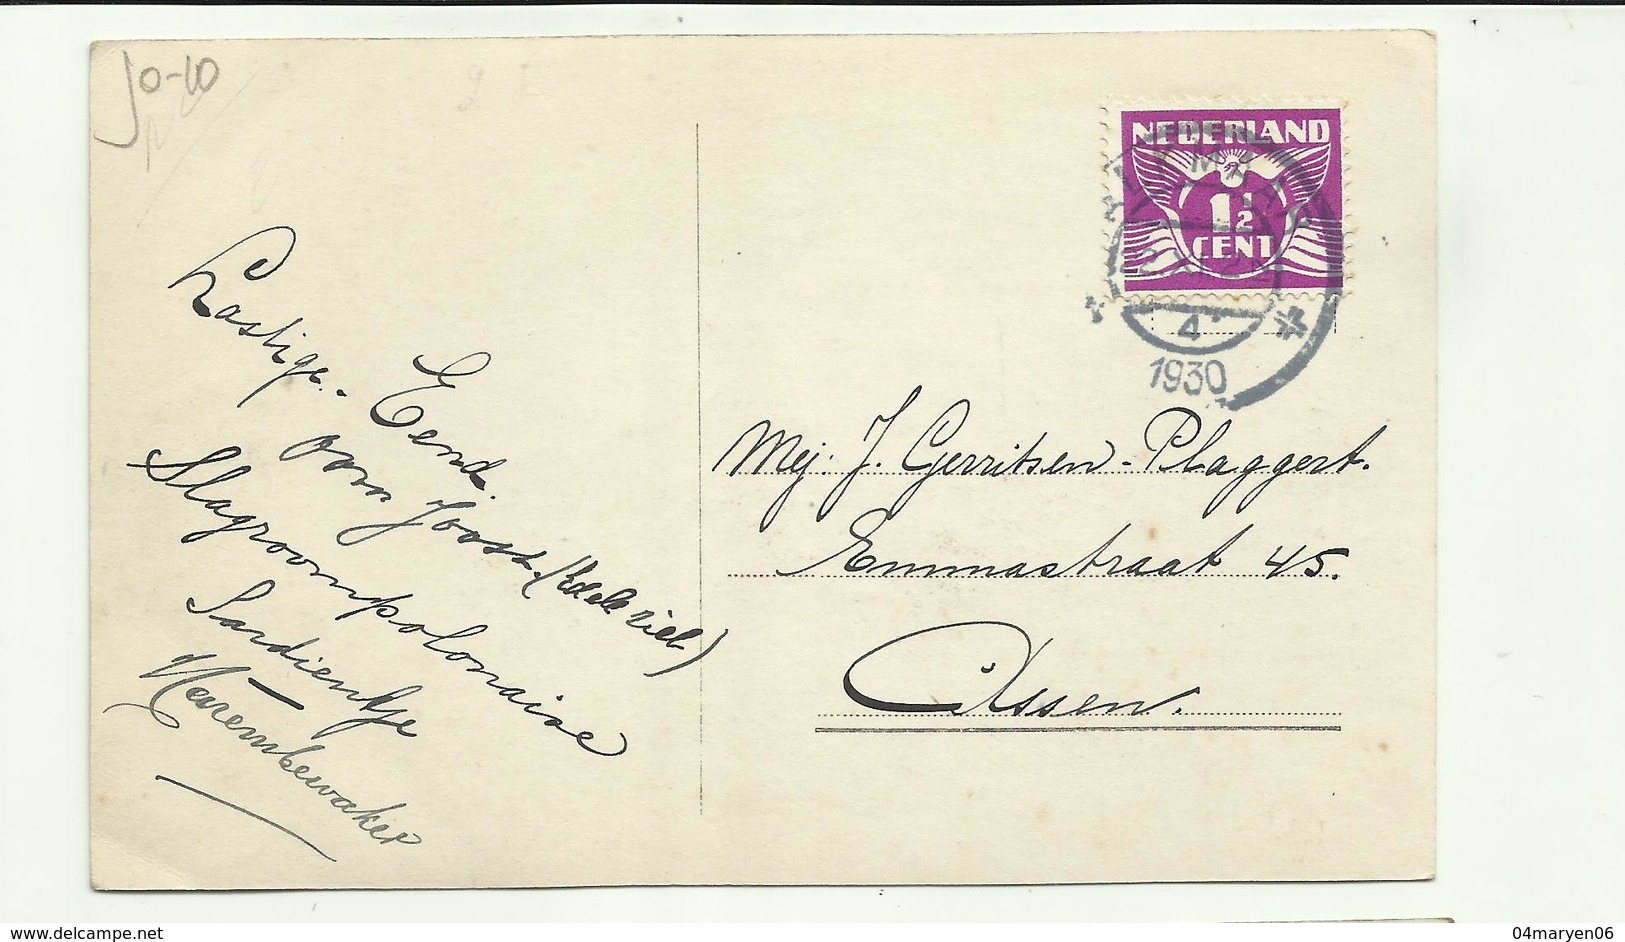 J0-10
NEDERLAND
1½
CENT
4
1930
Lastige.
Eend.
Oom Joost. (Edele ziel)
Slagroompolonaise
Sardientje
Harembewaker
Mej: J. Gerritsen-Plaggert.
Emmastraat 45.
Assen.
www.delcampe.net
04maryen06